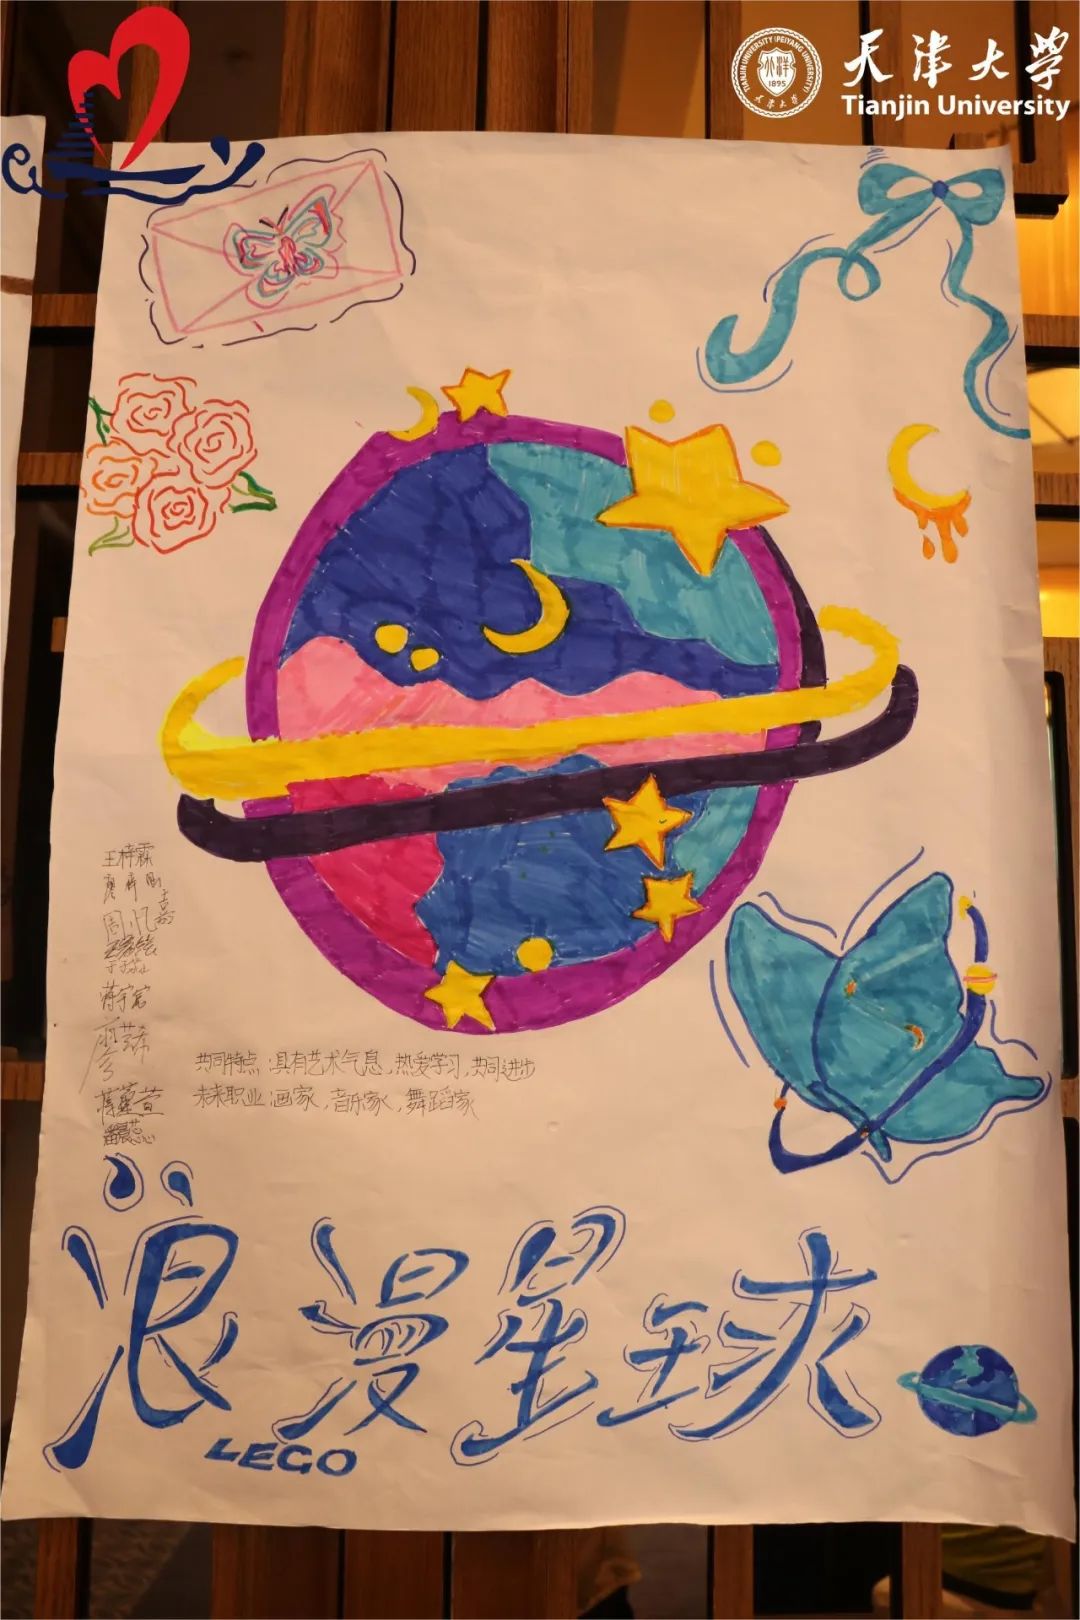 天津大学
Tianjin University
TIANJIN UNIVERSITY (PEIYANG UNIVERSITY)
北洋
1895
天津大学
王梓霖
蒋宇宸
共同特点:具有艺术气息,热爱学习,共同进步
未来职业:画家,音乐家,舞蹈家
浪漫星球
LEGO